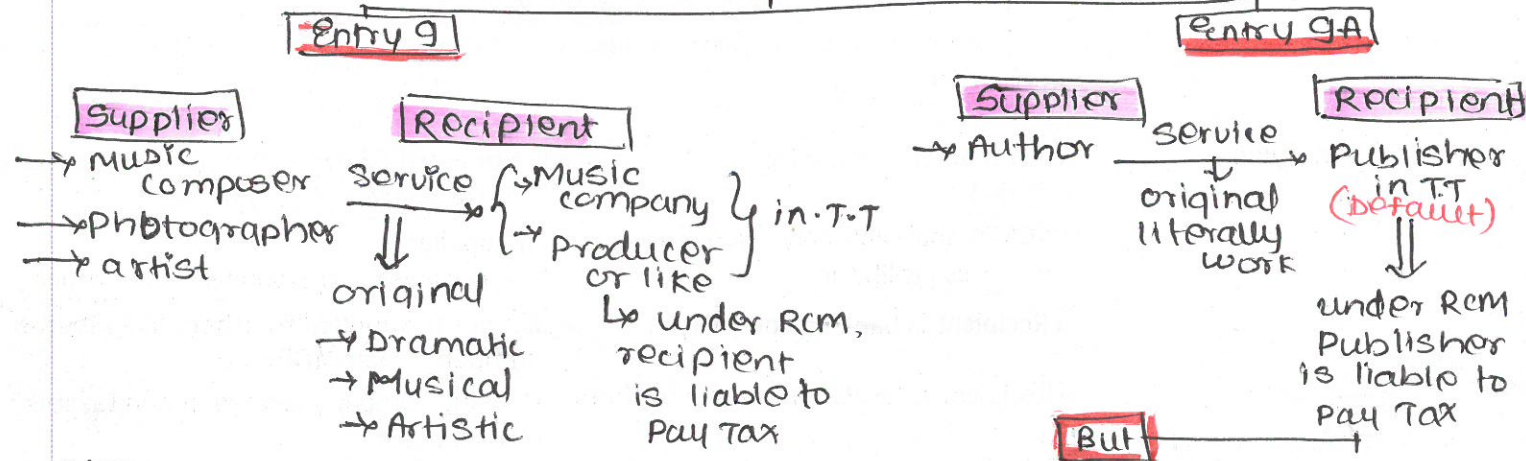 Entry 9
Supplier
→ Music
composer
→ Photographer
→ artist
Recipient
Service
original
→ Dramatic
→ Musical
→ Artistic
→ Music
company
→ Producer
or like
in.T.T
↳ under RCM,
recipient
is liable to
Pay Tax
Entry 9A
Supplier
→ Author
Service
original
literally
work
Recipient
Publisher
in T.T
(Default)
under RCM
Publisher
is liable to
Pay Tax
But